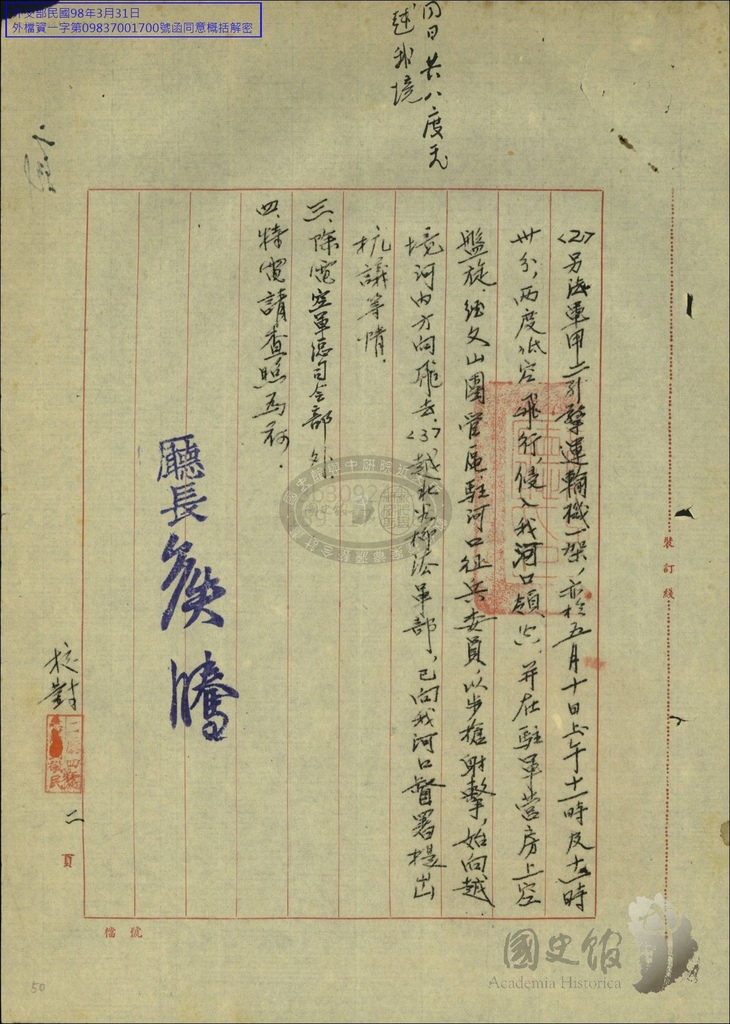 外交部民國98年3月31日
外檔資一字第09837001700號函同意概括解密
四日共八度飛
越我境
<2>另海軍甲二引擎運輸機一架，亦於五月十日上午十一時及十一時
卅分，兩度低空飛行，侵入我河口領空，并在駐軍營房上空
盤旋，經文山團管區駐河口征兵委員，以步槍射擊，始向越
境河内方向飛去。<3>越北老街法軍部，已向我河口督署提出
抗議等情。
三、除電空軍總司令部外，
四、特電請查照為荷。
廳長侯騰
校對
二頁
裝訂線
檔號
國史館
Academia Historica
50